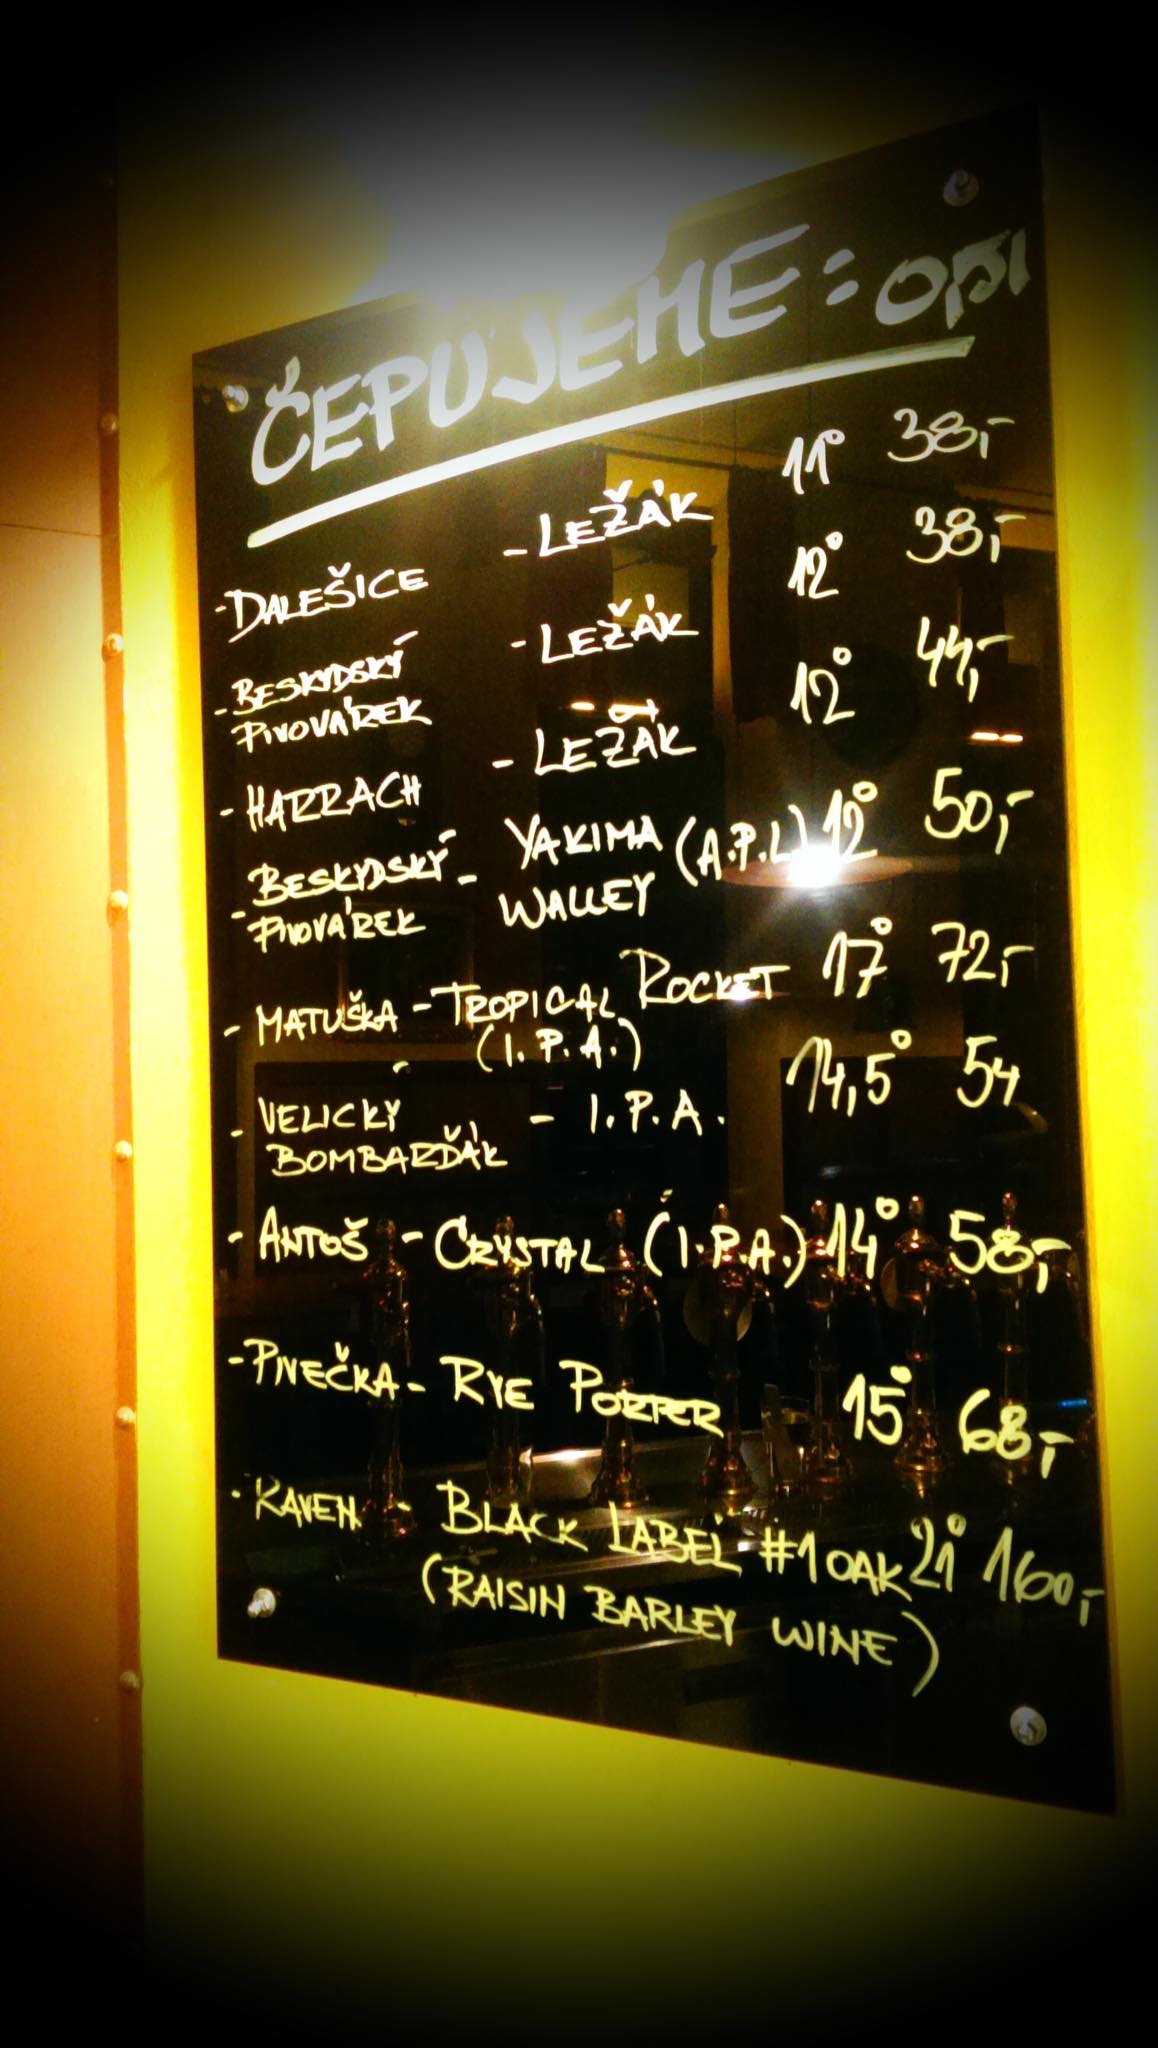 ČEPUJEME:
- DALEŠICE - LEŽÁK 11° 38,-
- BESKYDSKÝ PIVOVÁREK - LEŽÁK 12° 38,-
- HARRACH - LEŽÁK 12° 44,-
- BESKYDSKÝ - YAKIMA (A.P.L) 12° 50,-
PIVOVÁREK WALLEY
- MATUŠKA - TROPICAL ROCKET 17° 72,-
(I.P.A.)
- VELICKÝ - I.P.A. 14,5° 54
BOMBARĎÁK
- ANTOŠ - CRYSTAL (I.P.A.) 14° 58,-
- PIVEČKA - RYE PORTER 15° 68,-
- RAVEN - BLACK LABEL #1 OAK 21° 160,-
(RAISIN BARLEY WINE)